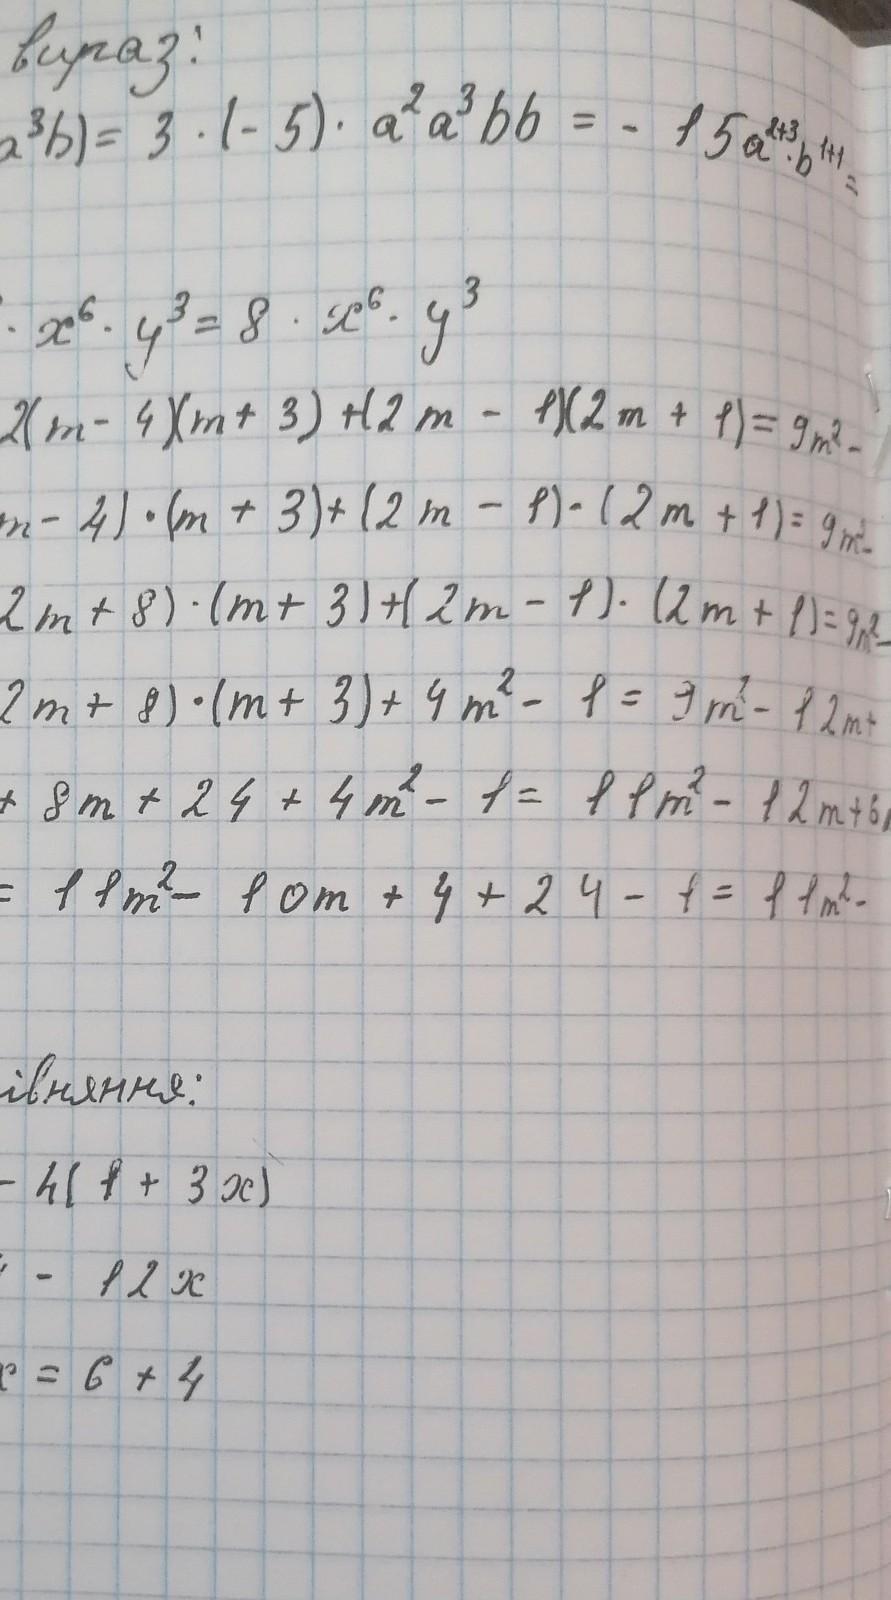 вираз:
a³b) = 3 · (- 5) · a² a³ bb = - 15a²⁺³ · b¹⁺¹ =
· x⁶ · y³ = 8 · x⁶ · y³
2(m - 4)(m + 3) + (2m - 1)(2m + 1) = 9m² -
m - 4) · (m + 3) + (2m - 1) · (2m + 1) = 9m² -
2m + 8) · (m + 3) + (2m - 1) · (2m + 1) = 9m² -
2m + 8) · (m + 3) + 4m² - 1 = 9m² - 12m +
+ 8m + 24 + 4m² - 1 = 11m² - 12m + 6
= 11m² - 10m + 4 + 24 - 1 = 11m² -
івняння:
- 4(1 + 3x)
- 12x
x = 6 + 4